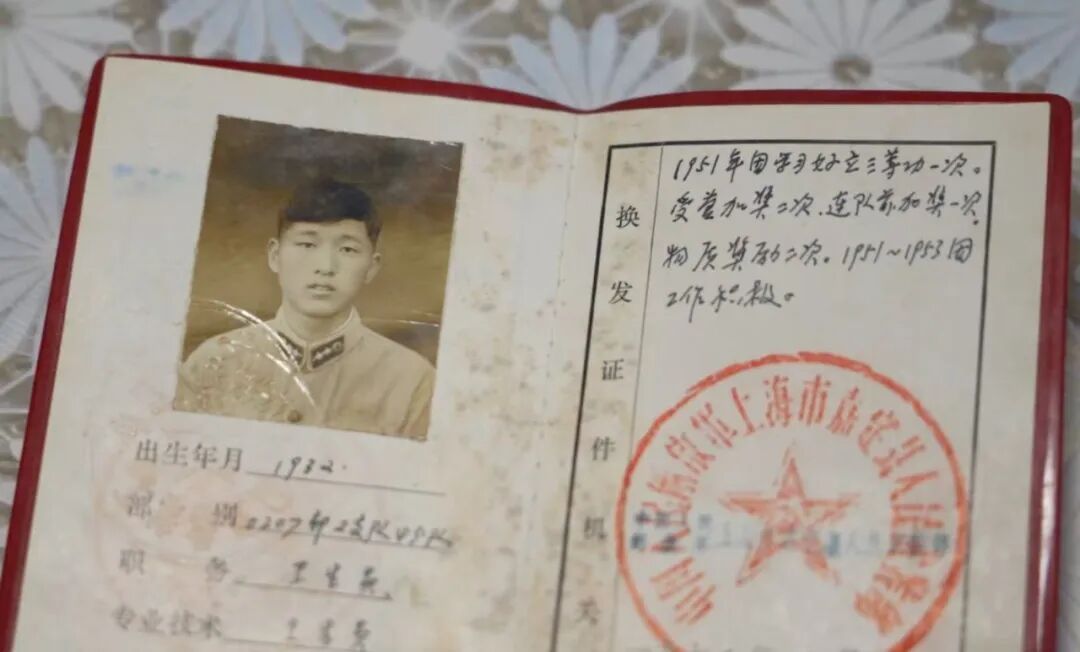 出生年月 1932.
部别 0207部2支队49队
职务 卫生员
专业技术 卫生员
换发证件机关
1951年因学习好立三等功一次。
受营加奖二次、连队前加奖一次
物质奖励二次。1951~1953因
工作积极。
中国人民解放军上海市嘉定县人民武装部